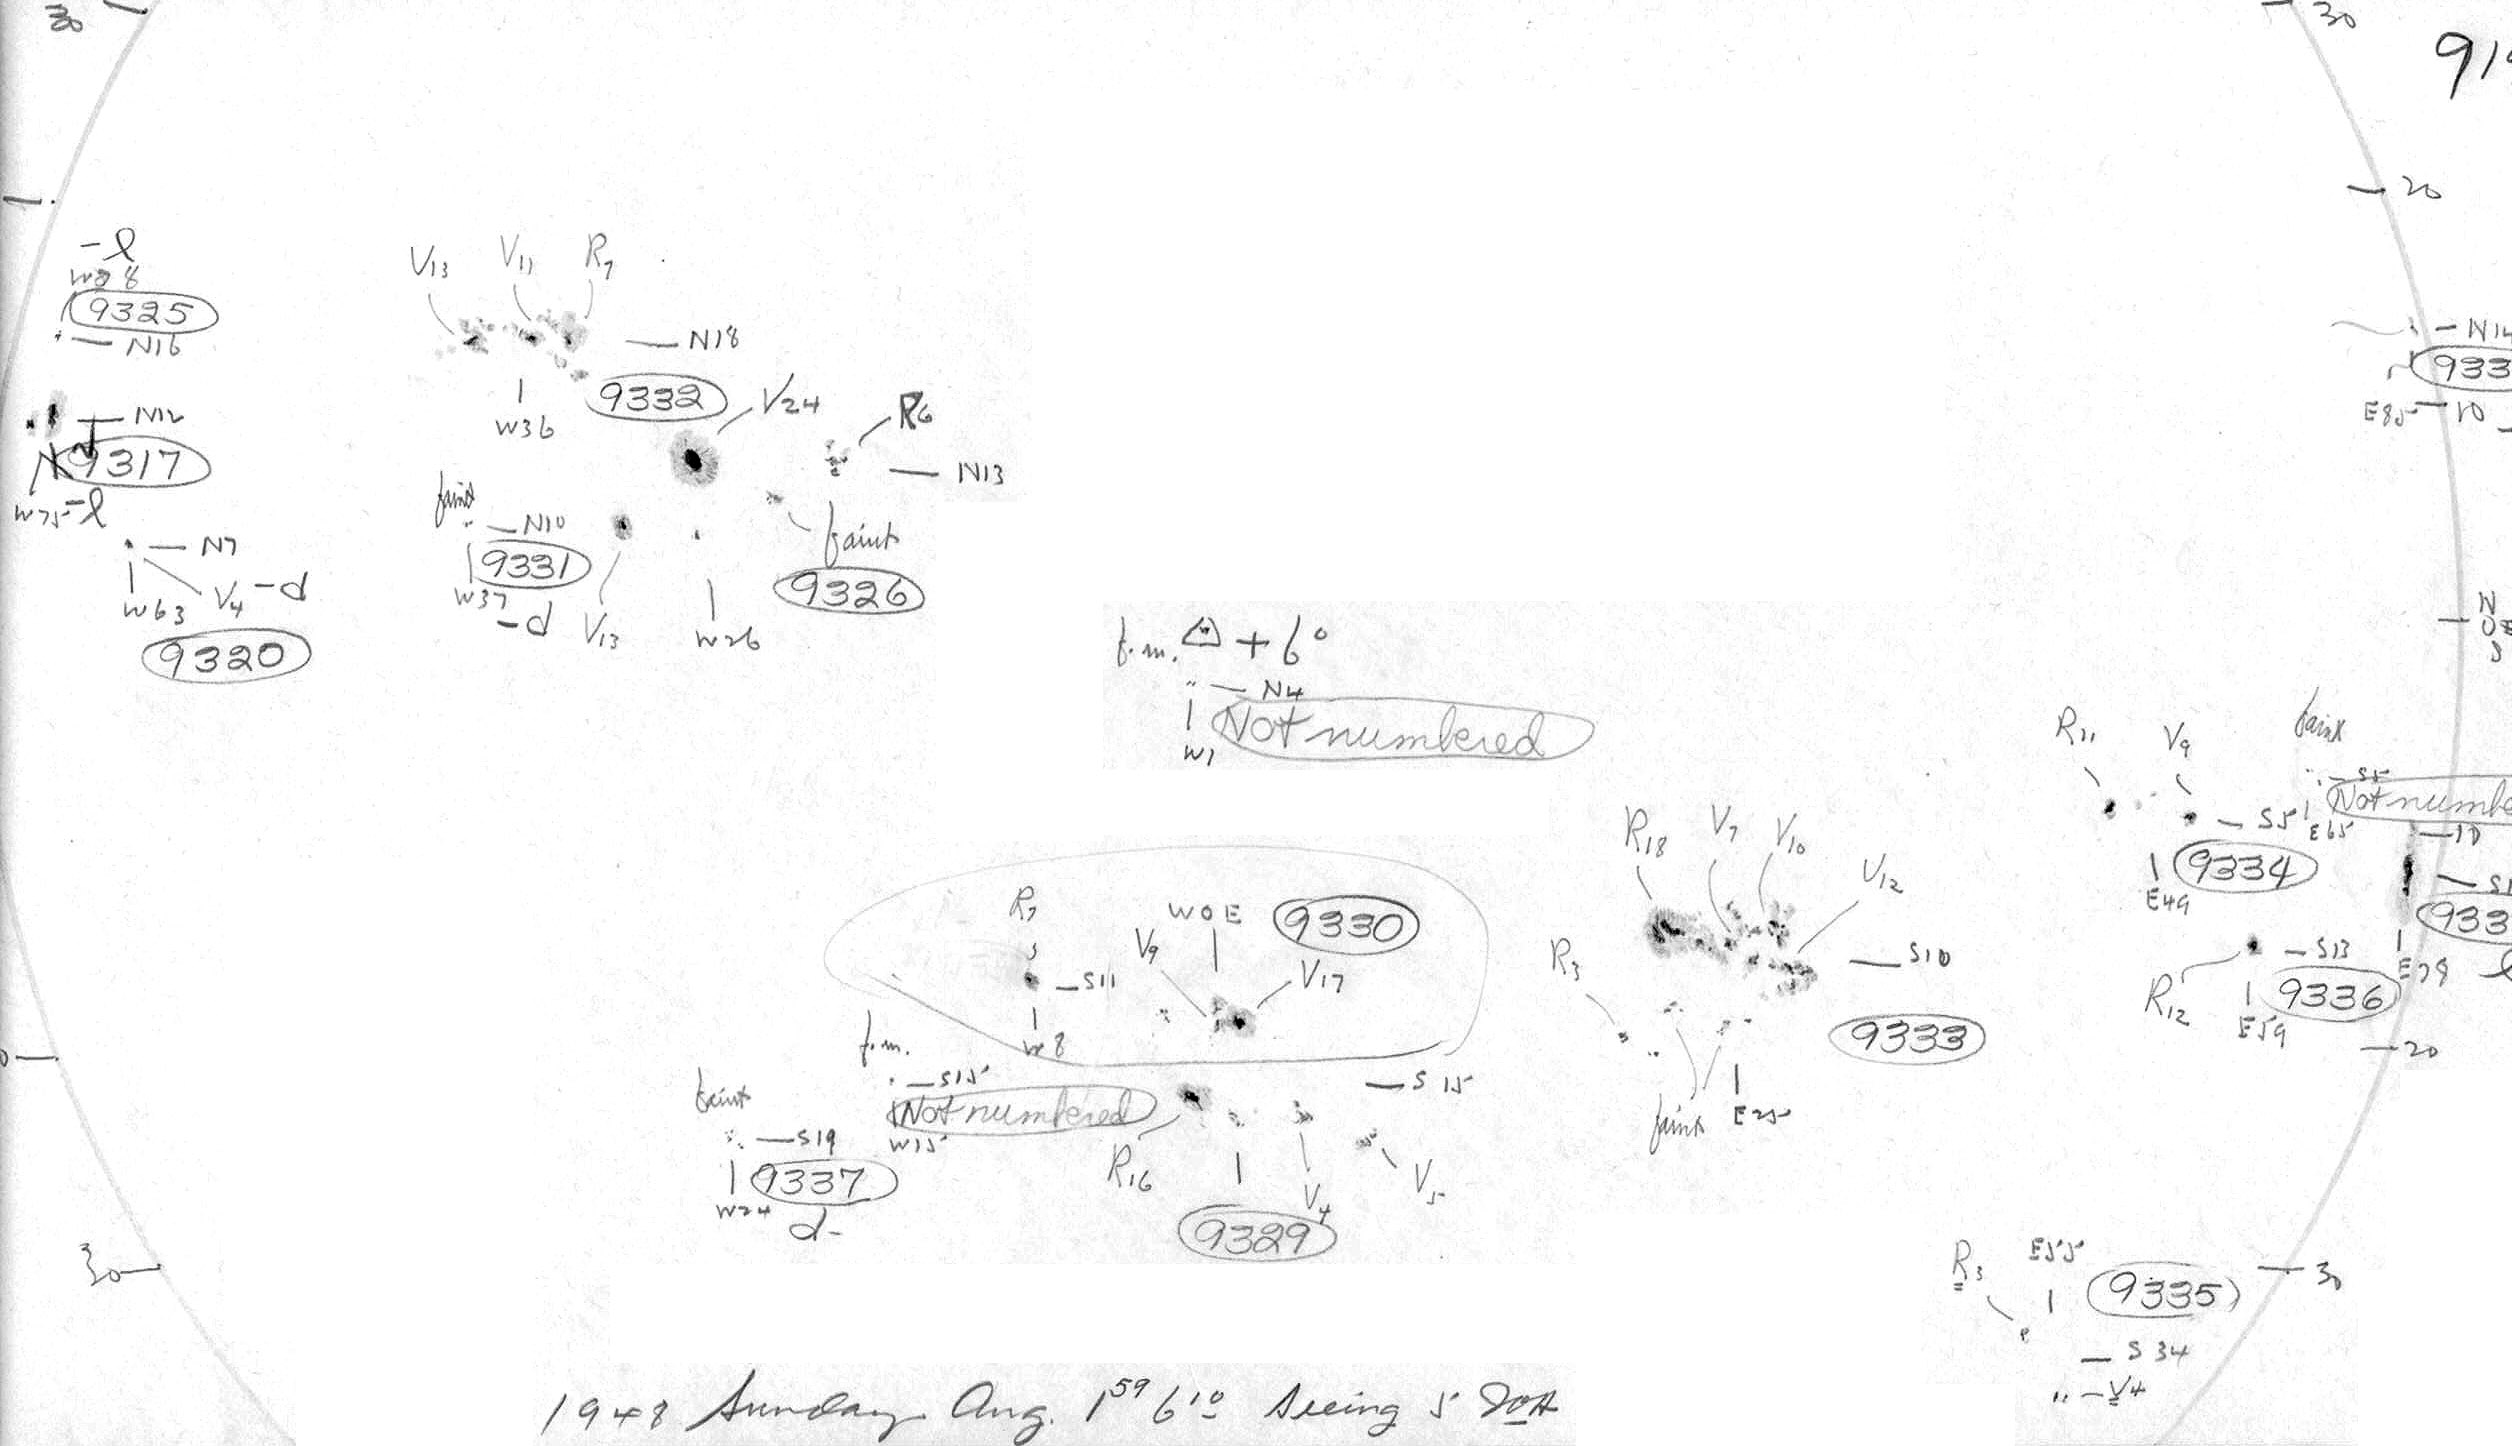 30
30
20
-l
8
9325
N16
N12
9317
W75 -l
N7
W63
V4 -d
9320
V13
V11
R7
N18
W36
9332
V24
R6
N13
faint
N10
9331
W37
-d
V13
W26
faint
9326
f.m. + 6°
N4
W1
Not numbered
N14
933
E85
10
N
S
R11
V9
faint
S5
E65
Not numbe
S5
E49
9334
10
933
E79
S13
R12
E59
9336
20
R18
V7
V10
V12
R3
S10
9333
faint
E25
R7
S11
W8
V9
W0E
9330
V17
f.m.
S15
Not numbered
W15
faint
S19
W24
9337
d-
R16
S15
V4
V5
9329
30
R3
E55
9335
30
S34
V4
1948 Sunday Aug. 1 59 6 10 Seeing 5